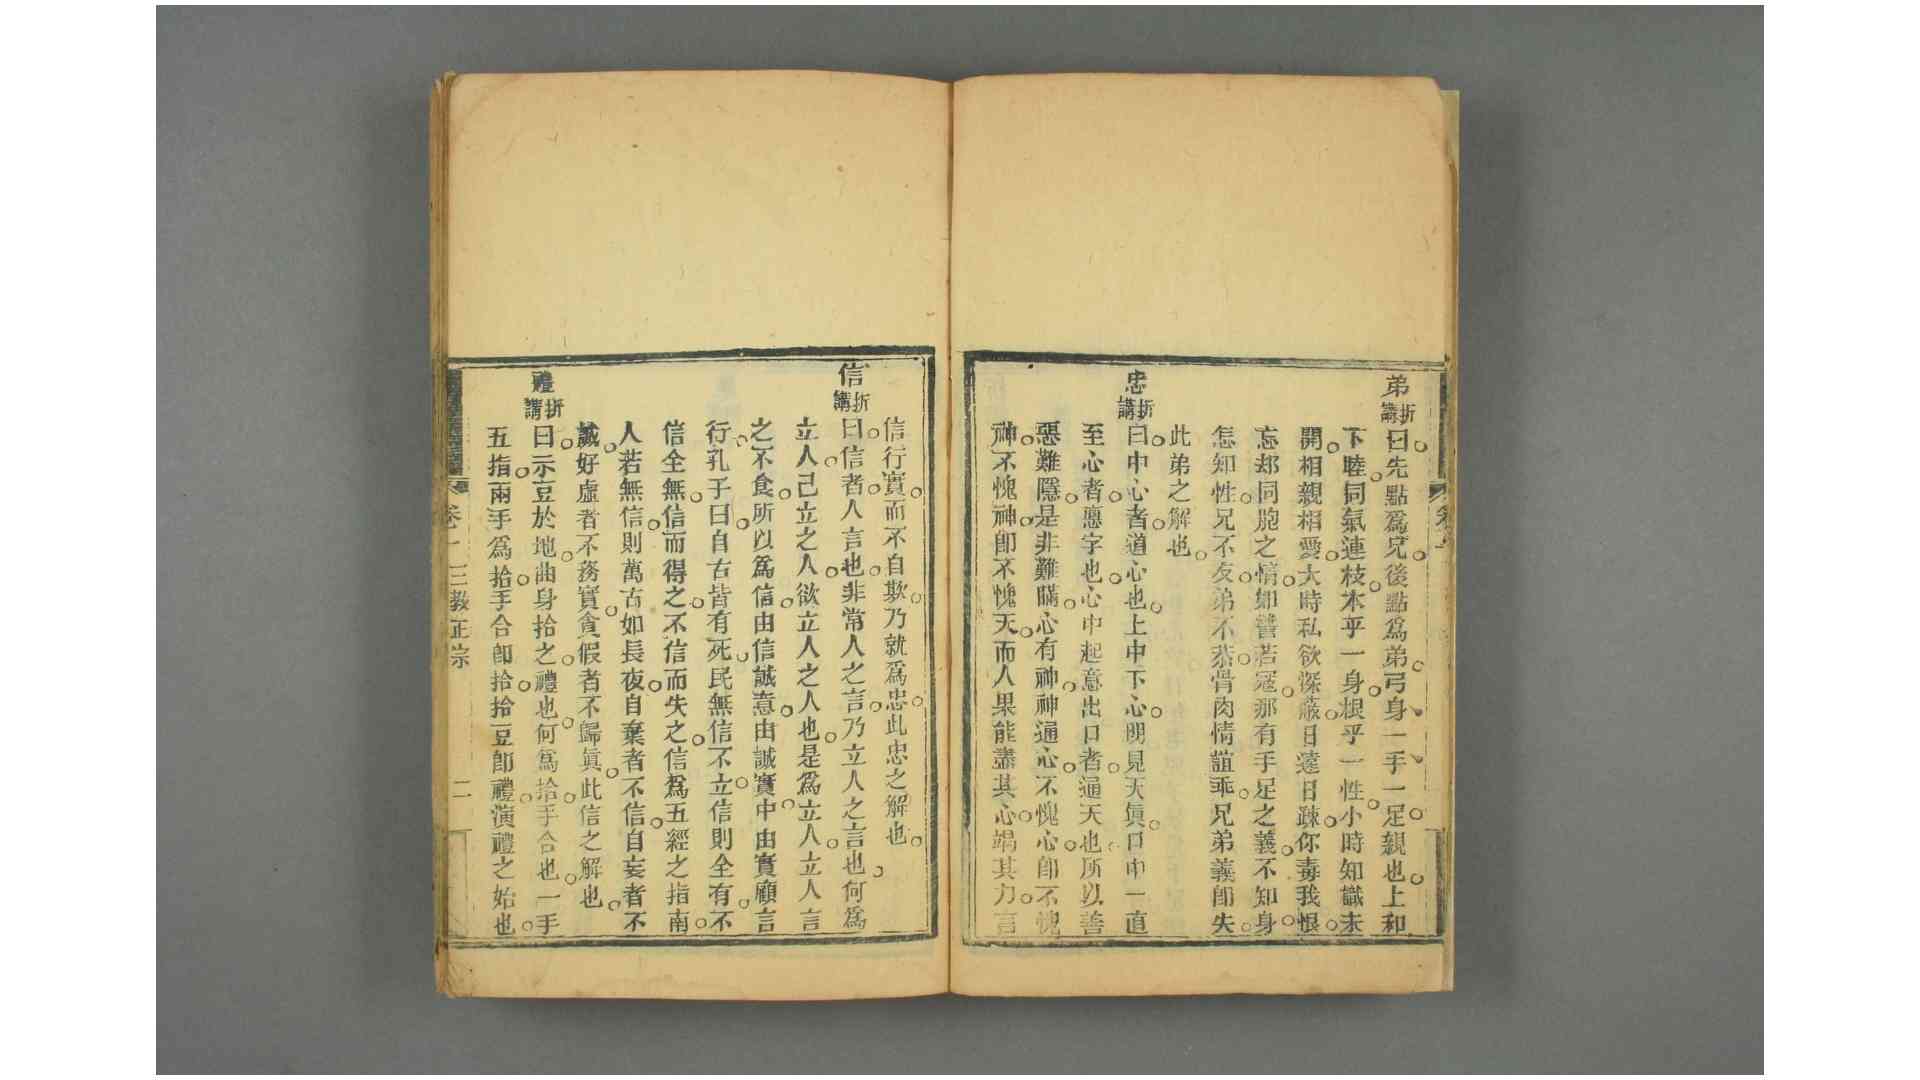 弟折講曰先點爲兄後點爲弟弓身一手一足親也上和
下睦同氣連枝本乎一身根乎一性小時知識未
開相親相愛大時私欲深蔽日遠日疎你毒我恨
忘却同胞之情如讐若寇那有手足之義不知身
怎知性兄不友弟不恭骨肉情誼乖兄弟義卽失
此弟之解也
忠折講曰中心者道心也上中下心明見天眞口中一直
至心者悳字也心中起意出口者通天也所以善
惡難隱是非難瞞心有神神通心不愧心卽不愧
神不愧神卽不愧天而人果能盡其心竭其力言
信行實而不自欺乃就爲忠此忠之解也
信折講曰信者人言也非常人之言乃立人之言也何爲
立人己立之人欲立人之人也是爲立人立人言
之不食所以爲信由信誠意由誠實中由實顧言
行孔子曰自古皆有死民無信不立信則全有不
信全無信而得之不信而失之信爲五經之指南
人若無信則萬古如長夜自棄者不信自妄者不
誠好虛者不務實貪假者不歸眞此信之解也
禮折講曰示豆於地曲身拾之禮也何爲拾手合也一手
五指兩手爲拾手合卽拾拾豆卽禮演禮之始也
卷一 三教正宗 二